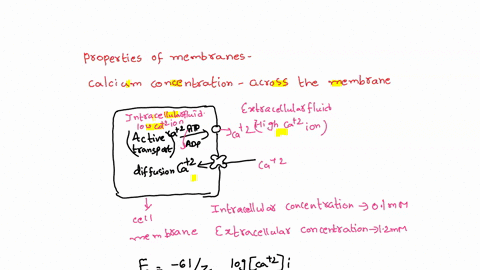 properties of membranes-
calcium concentration - across the membrane
Intracellularfluid
low ca+2 ion
Extracellularfluid
(High Ca+2 ion)
(Active transpot)
ca+2
ATP
ADP
ca+2
diffusion Ca+2
Ca+2
cell membrane
Intracellular concentration → 0.1mM
Extracellular concentration → 1.2mM
E = -61/z log [ca+2] i